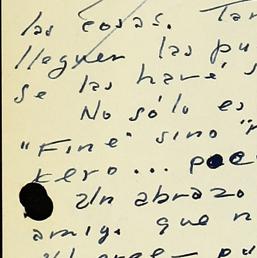 las cosas. Tan
lleguen las pu
se las haré s
No sólo es
"Fine" sino "
Kero... poe
Un abrazo
amig. que n